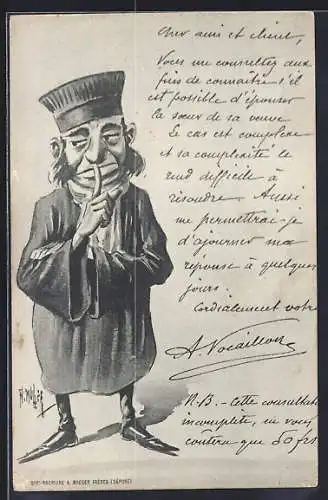 Cher ami et client,
Vous me consultez aux
fins de connaître s'il
est possible d'épouser
la sœur de sa veuve
Le cas est complexe
et sa complexité le
rend difficile à
résoudre. Aussi
me permettrai-je
d'ajourner ma
réponse à quelques
jours.
Cordialement votre
A. Vocaillon
N.B. - Cette consultation
incomplète, ne vous
coutera que 50 frs